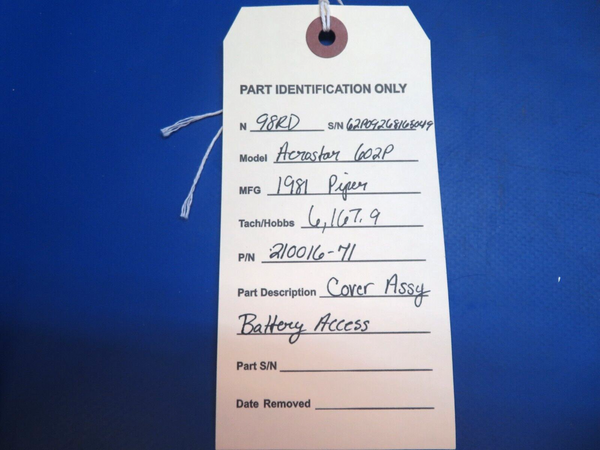 PART IDENTIFICATION ONLY
N 98RD S/N 62P09268165049
Model Aerostar 602P
MFG 1981 Piper
Tach/Hobbs 6,167.9
P/N 210016-71
Part Description Cover Assy
Battery Access
Part S/N
Date Removed